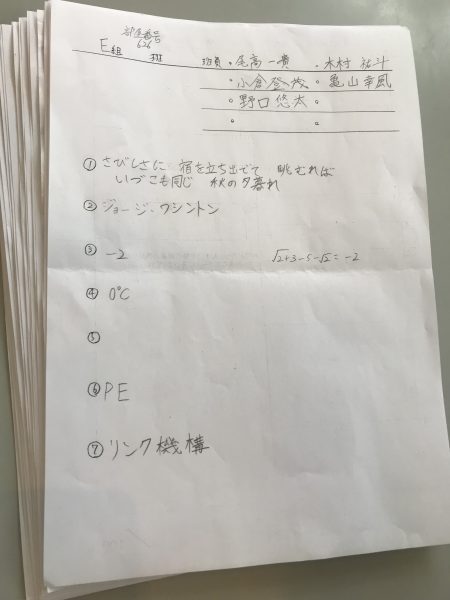 部屋番号
626
E組 班
班員・尾高一貴 ・木村 祐斗
・小倉登茂 ・亀山幸風
・野口悠太 ・
① さびしさに 宿を立ち出でて 眺むれば
いづこも同じ 秋の夕暮れ
② ジョージ・ワシントン
③ -2 √2+3-5-√2=-2
④ 0℃
⑤
⑥ PE
⑦ リンク機構